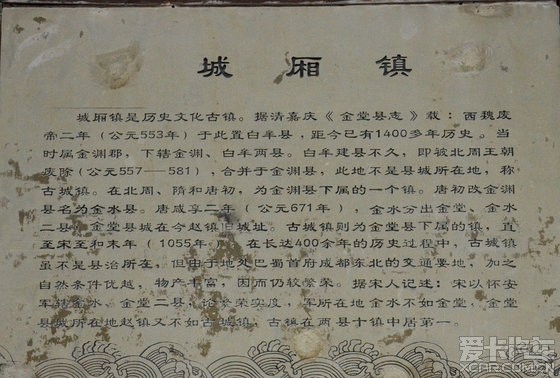 城厢镇
城厢镇是历史文化古镇。据清嘉庆《金堂县志》载：西魏废
帝二年（公元553年）于此置白牟县，距今已有1400多年历史。当
时属金渊郡，下辖金渊、白牟两县。白牟建县不久，即被北周王朝
废除（公元557—581），合并于金渊县，此地不是县城所在地，称
古城镇。在北周、隋和唐初，为金渊县下属的一个镇。唐初改金渊
县名为金水县。唐咸享二年（公元671年），金水分出金堂、金水
二县，金堂县城在今赵镇旧城址。古城镇则为金堂县下属的镇，直
至宋至和末年（1055年）。在长达400余年的历史过程中，古城镇
虽不是县治所在。但由于地处巴蜀首府成都东北的交通要地，加之
自然条件优越，物产丰富，因而仍较繁荣。据宋人记述：宋以怀安
军辖金水、金堂二县，论繁荣实度，军所在地金水不如金堂，金堂
县城所在地赵镇又不如古城镇，古镇在两县十镇中居第一。
爱卡汽车
XCAR.COM.CN